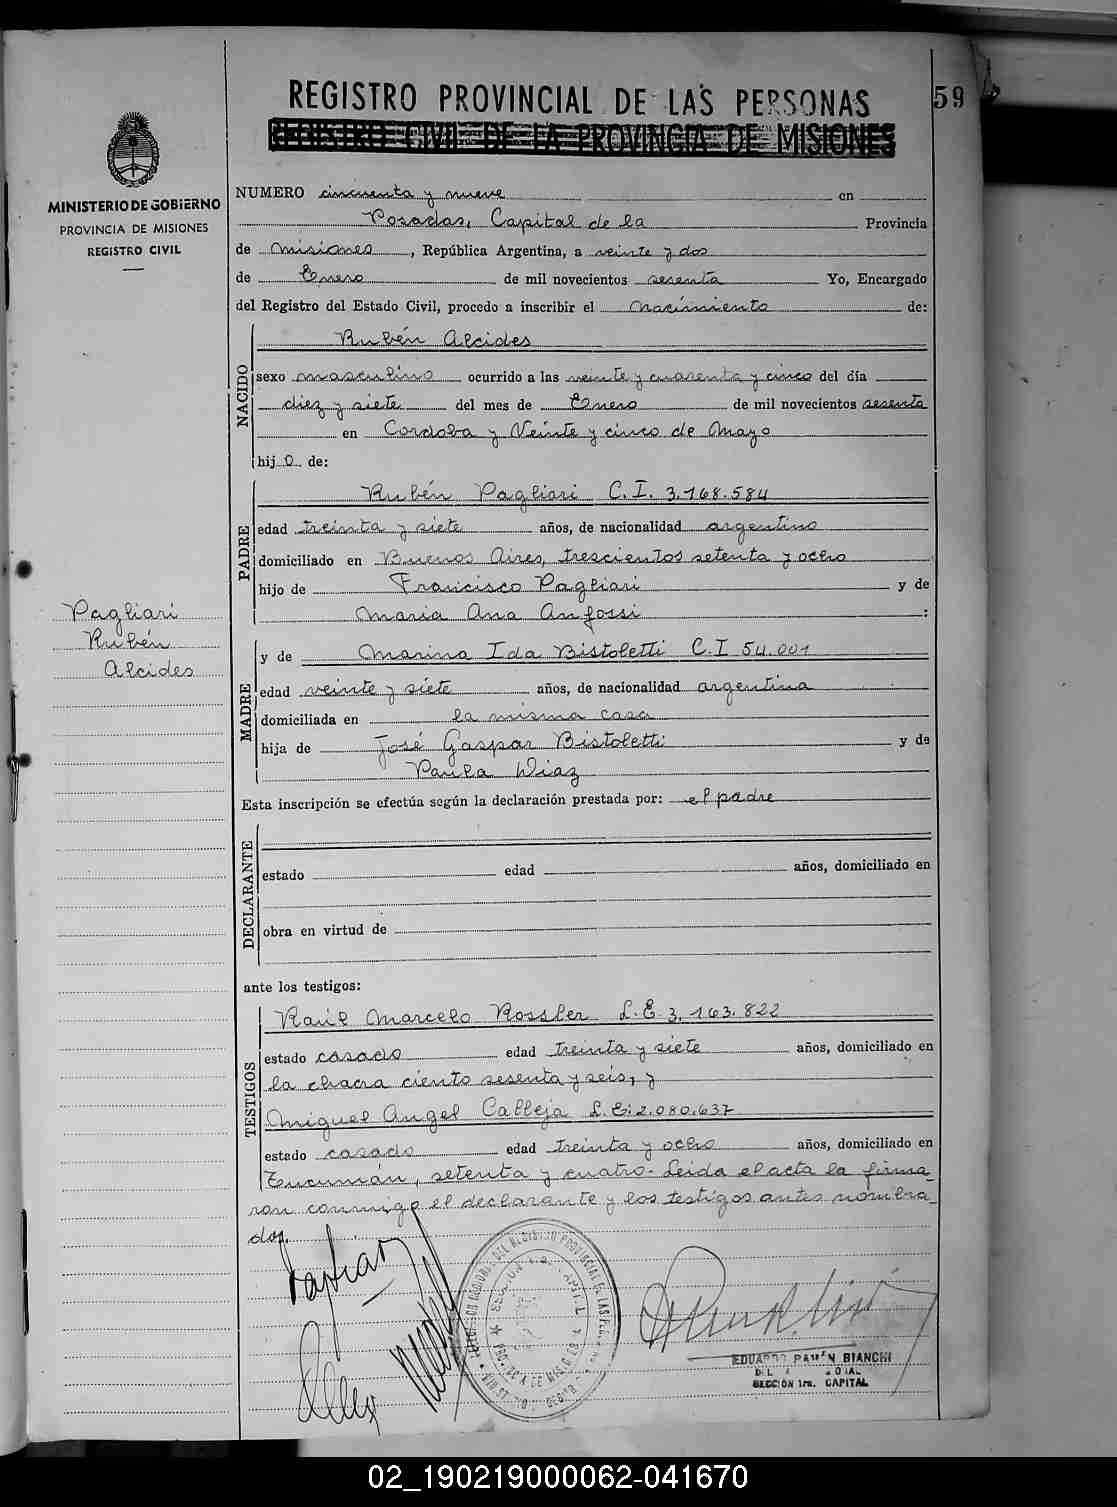 REGISTRO PROVINCIAL DE LAS PERSONAS
59
REGISTRO CIVIL DE LA PROVINCIA DE MISIONES
MINISTERIO DE GOBIERNO
PROVINCIA DE MISIONES
REGISTRO CIVIL
NUMERO cincuenta y nueve en
Posadas, Capital de la Provincia
de misiones, República Argentina, a veinte y dos
de Enero de mil novecientos sesenta Yo, Encargado
del Registro del Estado Civil, procedo a inscribir el nacimiento de:
NACIDO
Rubén Alcides
sexo masculino ocurrido a las veinte y cuarenta y cinco del día
diez y siete del mes de Enero de mil novecientos sesenta
en Cordoba y Veinte y cinco de Mayo
hijo de:
PADRE
Rubén Pagliari C.I. 3.168.584
edad treinta y siete años, de nacionalidad argentino
domiciliado en Buenos Aires, trescientos setenta y ocho
hijo de Francisco Pagliari y de
Maria Ana Anfossi :
Pagliari
Rubén
Alcides
MADRE
y de Marina Ida Bistoletti C.I 54.001
edad veinte y siete años, de nacionalidad argentina
domiciliada en la misma casa
hija de José Gaspar Bistoletti y de
Paula Diaz
Esta inscripción se efectúa según la declaración prestada por: el padre
DECLARANTE
estado edad años, domiciliado en
obra en virtud de
ante los testigos:
TESTIGOS
Raúl Marcelo Rossler L.E 3.163.822
estado casado edad treinta y siete años, domiciliado en
la chacra ciento sesenta y seis, y
Miguel Angel Calleja L.E: 2.080.637
estado casado edad treinta y ocho años, domiciliado en
Tucumán, setenta y cuatro. Leida el acta la firma-
ron conmigo el declarante y los testigos antes nombra-
dos.
EDUARDO RAMÓN BIANCHI
SECCIÓN 1ra. CAPITAL
02_190219000062-041670